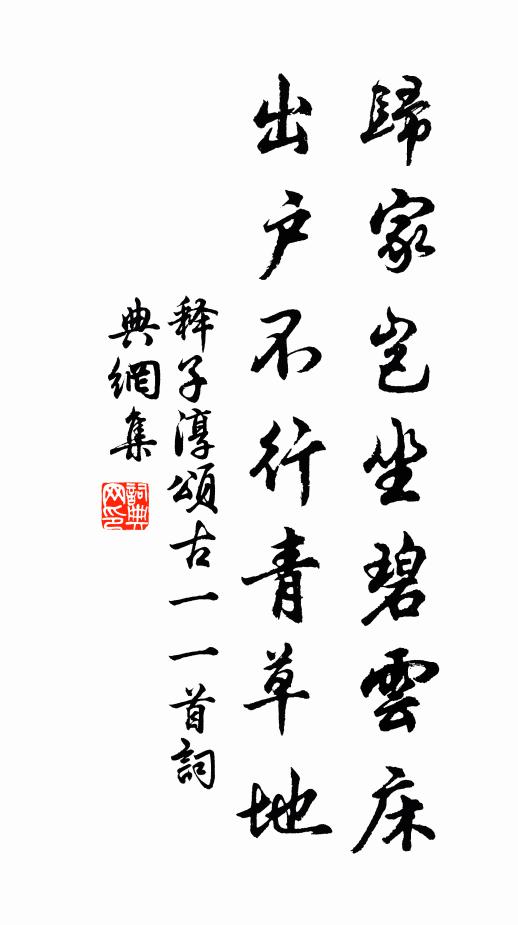 歸家岂坐碧雲床
出户不行青草地
释子淳頌古一一首詞
典網集
詞典
网印